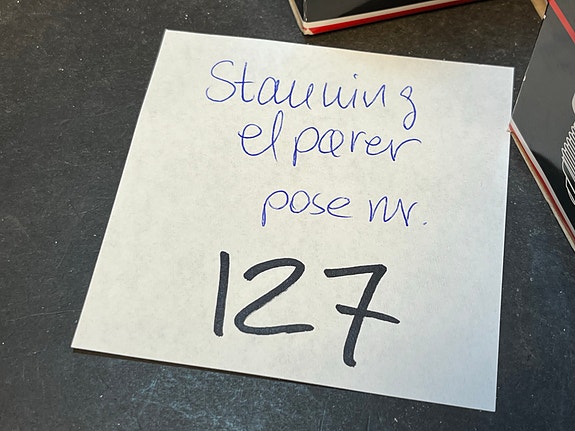 Stauning
elpærer
pose nr.
127